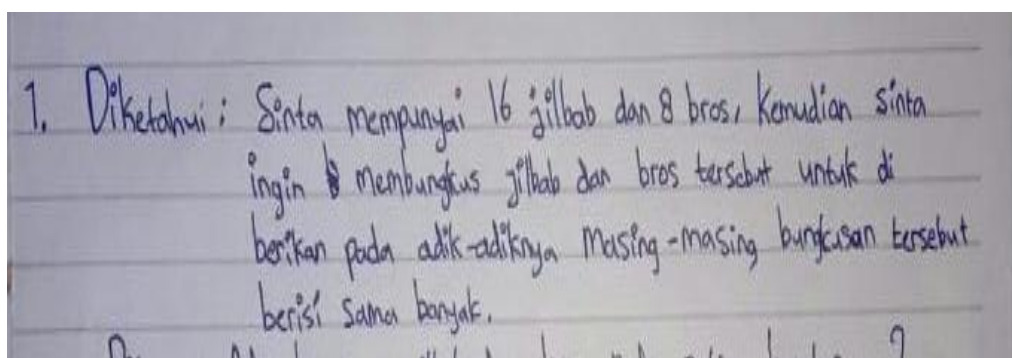 1. Diketahui : Sinta mempunyai 16 jilbab dan 8 bros, Kemudian sinta
ingin membungkus jilbab dan bros tersebut untuk di
berikan pada adik-adiknya masing-masing bungkusan tersebut
berisi sama banyak.